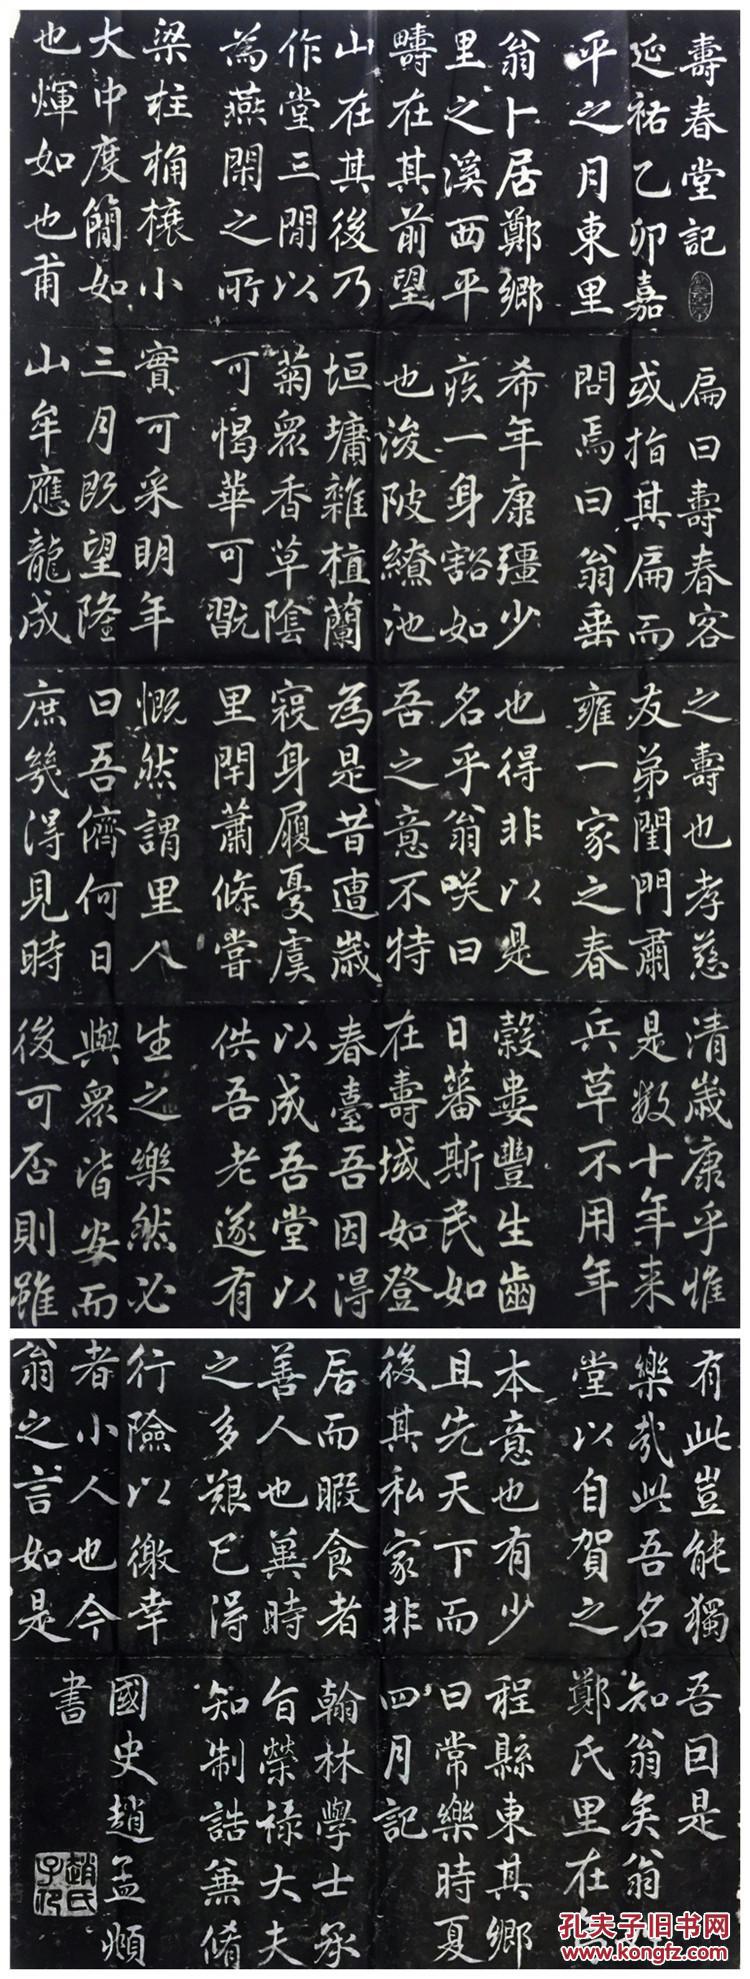 壽春堂記
延祐乙卯嘉
平之月東里
翁卜居鄭鄉
里之溪西平
疇在其前望
山在其後乃
作堂三間以
為燕閑之所
梁柱桷榱小
大中度簡如
也煇如也甫
扁曰壽春客
或指其扁而
問焉曰翁垂
希年康彊少
疾一身谿如
也浚陂繚池
垣墉雜植蘭
菊眾香草陰
可愒華可翫
實可采明年
三月既望隆
山牟應龍成
之壽也孝慈
友弟閨門肅
雍一家之春
也得非以是
名乎翁咲曰
吾之意不特
為是昔遭歲
祲身履憂虞
里閈蕭條嘗
慨然謂里人
曰吾儕何日
庶幾得見時
清歲康乎惟
是數十年来
兵草不用年
穀婁豐生齒
日蕃斯民如
在壽域如登
春臺吾因得
以成吾堂以
供吾老遂有
生之樂然必
與眾皆安而
後可否則雖
有此豈能獨
樂哉此吾名
堂以自賀之
本意也有少
且先天下而
後其私家非
居而暇食者
善人也冀時
之多艱已得
行險以徼幸
者小人也今
翁之言如是
吾回是
知翁矣翁
鄭氏里在
程縣東其鄉
曰常樂時夏
四月記
翰林學士承
旨榮祿大夫
知制誥兼脩
國史趙孟頫
書
趙氏子昂
孔夫子旧书网
www.kongfz.com